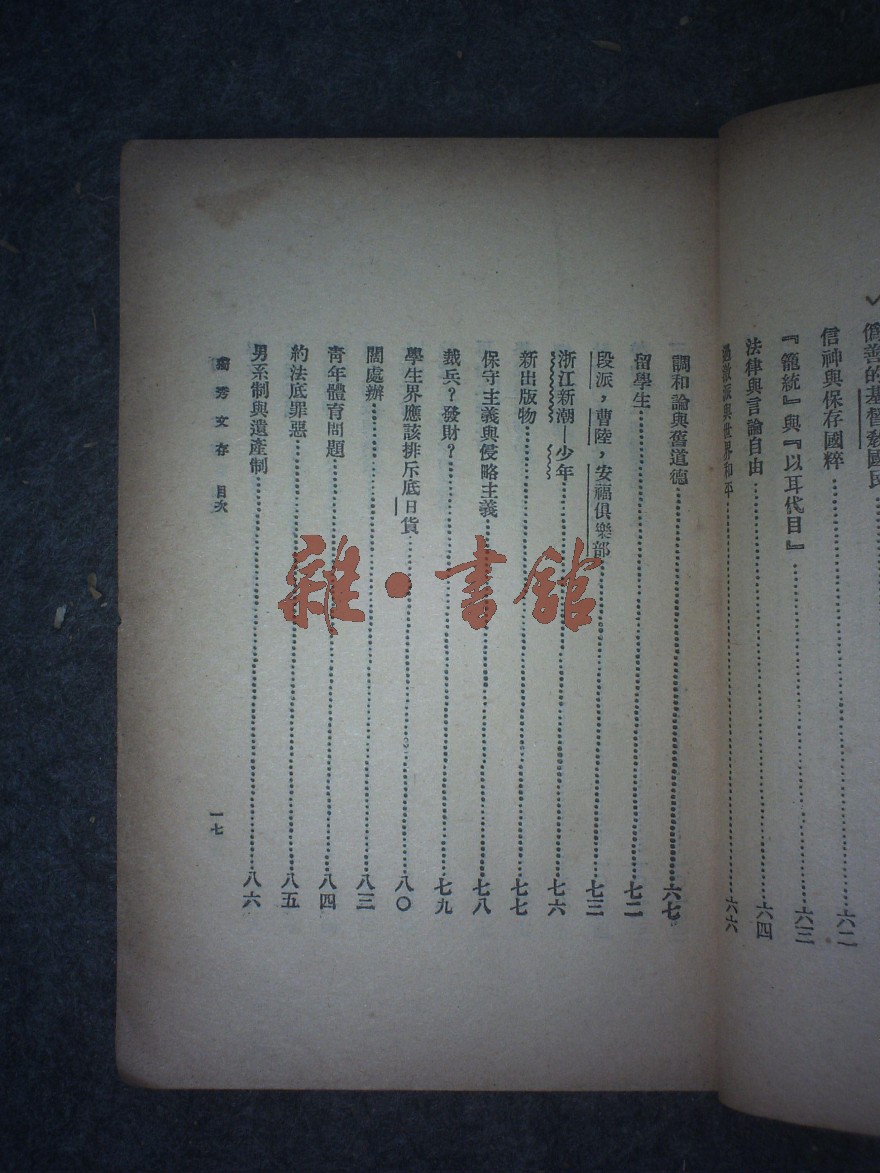 僞善的基督敎國民
信神與保存國粹……六二
『籠統』與『以耳代目』……六三
法律與言論自由……六四
過激派與世界和平……六六
調和論與舊道德……六七
留學生……七二
段派，曹陸，安福俱樂部……七三
浙江新潮—少年……七六
新出版物……七七
保守主義與侵略主義……七八
裁兵？發財？……七九
學生界應該排斥底日貨……八〇
闊處辦……八三
靑年體育問題……八四
約法底罪惡……八五
男系制與遺產制……八六
獨秀文存 目次 一七
雜·書館